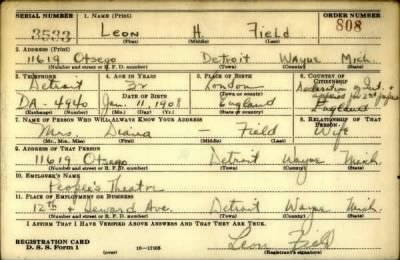 SERIAL NUMBER 1. NAME (Print) ORDER NUMBER
3533 Leon H. Field 808
(First) (Middle) (Last)
2. ADDRESS (Print)
11619 Otsego Detroit Wayne Mich.
(Number and street or R. F. D. number) (Town) (County) (State)
3. TELEPHONE 4. AGE IN YEARS 5. PLACE OF BIRTH 6. COUNTRY OF CITIZENSHIP
Detroit 32 London Declaration of Int.
DATE OF BIRTH (Town or county)
DA-4940 Jan. 11, 1908 England England
(Exchange) (Number) (Mo.) (Day) (Yr.) (State or country)
7. NAME OF PERSON WHO WILL ALWAYS KNOW YOUR ADDRESS 8. RELATIONSHIP OF THAT PERSON
Mrs. Diana — Field Wife
(Mr., Mrs., Miss) (First) (Middle) (Last)
9. ADDRESS OF THAT PERSON
11619 Otsego Detroit Wayne Mich.
(Number and street or R. F. D. number) (Town) (County) (State)
10. EMPLOYER'S NAME
People's Theatre
11. PLACE OF EMPLOYMENT OR BUSINESS
12th & Seward Ave. Detroit Wayne Mich.
(Number and street or R. F. D. number) (Town) (County) (State)
I AFFIRM THAT I HAVE VERIFIED ABOVE ANSWERS AND THAT THEY ARE TRUE.
Leon Field
REGISTRATION CARD
D. S. S. Form 1 (over) 16-17105 (Registrant's signature)